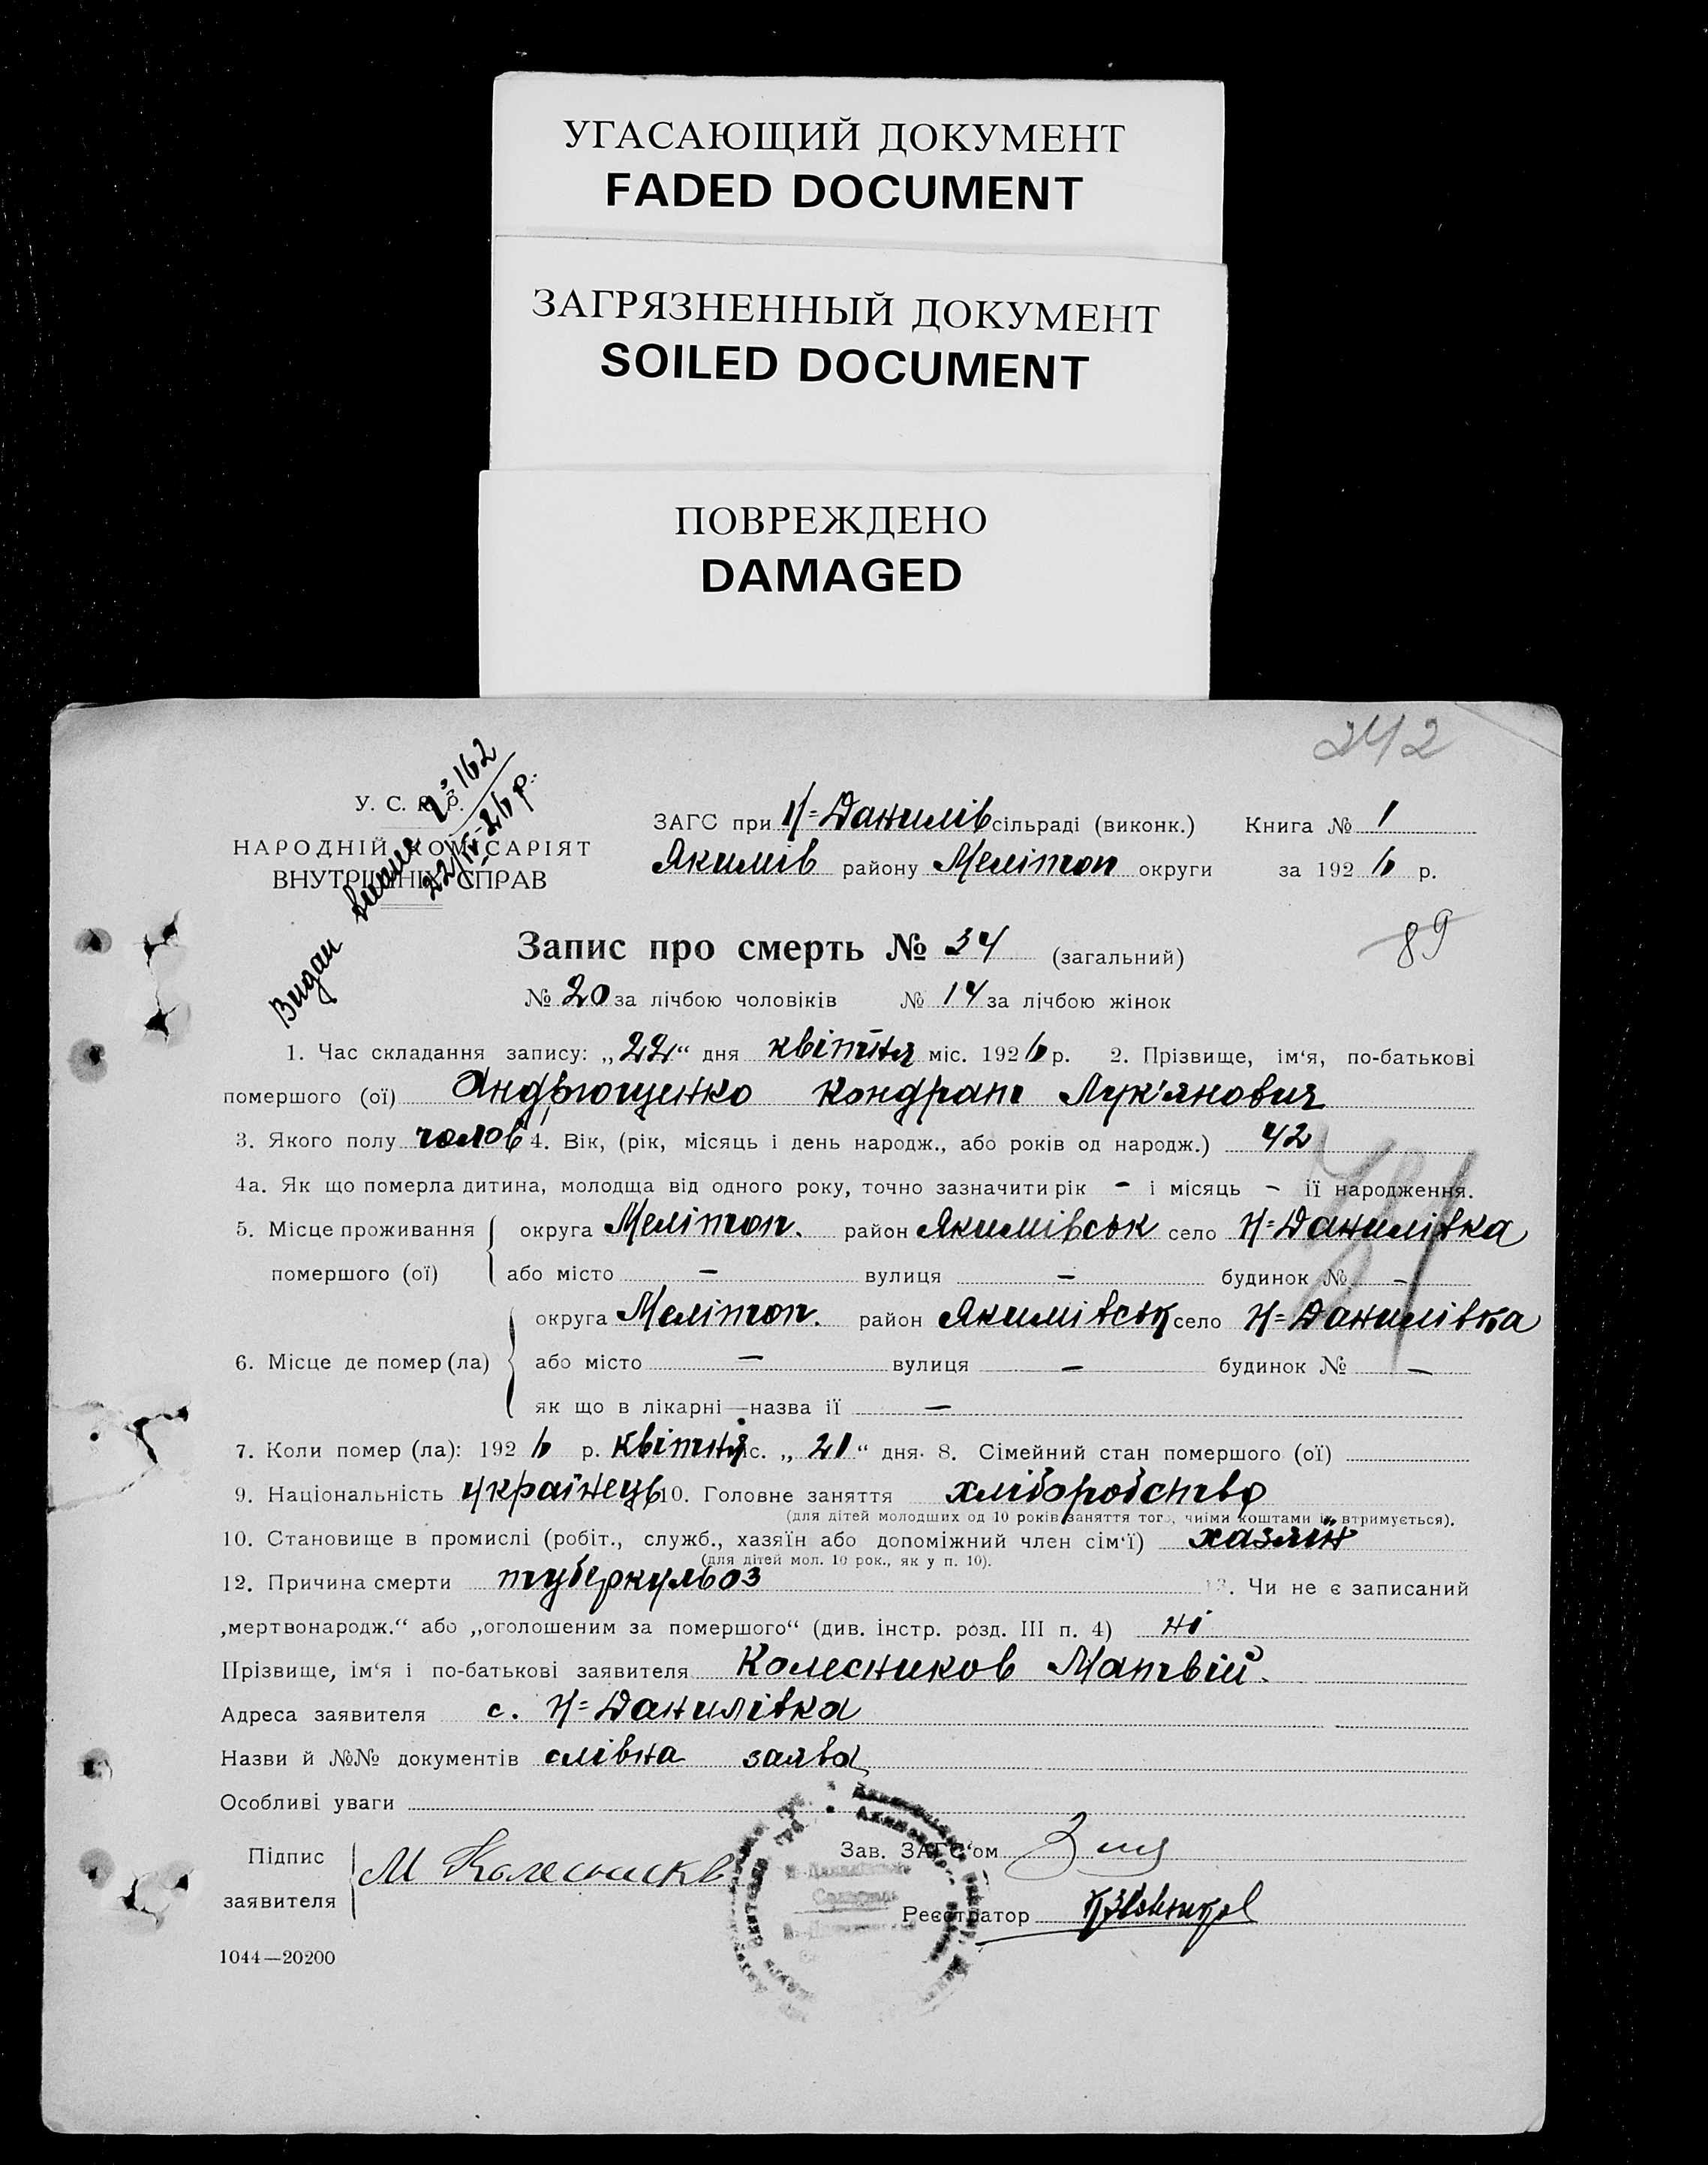 УГАСАЮЩИЙ ДОКУМЕНТ
FADED DOCUMENT
ЗАГРЯЗНЕННЫЙ ДОКУМЕНТ
SOILED DOCUMENT
ПОВРЕЖДЕНО
DAMAGED
242
У. С. Р. Р.
НАРОДНІЙ КОМІСАРІЯТ
ВНУТРІШНІХ СПРАВ
Видан № 162
22/IV-26 р.
ЗАГС при Н=Данилів сільраді (виконк.) Книга № 1
Якимів району Меліпоп округи за 1926 р.
89
Запис про смерть № 34 (загальний)
№ 20 за лічбою чоловіків № 14 за лічбою жінок
1. Час складання запису: „22“ дня квітня міс. 1926 р. 2. Прізвище, ім‘я, по-батькові
помершого (ої) Андрющенко Кондрат Лук'янович
3. Якого полу чолов 4. Вік, (рік, місяць і день народж., або років од народж.) 42
4а. Як що померла дитина, молодща від одного року, точно зазначити рік - і місяць - її народження.
5. Місце проживання округа Меліпоп. район Якимівськ село Н=Данилівка
помершого (ої) або місто - вулиця - будинок № -
округа Меліпоп. район Якимівськ село Н=Данилівка
6. Місце де помер (ла) або місто - вулиця - будинок № -
як що в лікарні—назва її -
7. Коли помер (ла): 1926 р. квітня міс. „21“ дня. 8. Сімейний стан помершого (ої)
9. Національність українець 10. Головне заняття хліборобство
(для дітей молодших од 10 років заняття того, чиїми коштами їх втримується).
10. Становище в промислі (робіт., служб., хазяїн або допоміжний член сім‘ї) хазяїн
(для дітей мол. 10 рок., як у п. 10).
12. Причина смерти туберкульоз 13. Чи не є записаний
„мертвонародж.“ або „оголошеним за померщого“ (див. інстр. розд. III п. 4) ні
Прізвище, ім‘я і по-батькові заявителя Колесников Матвій.
Адреса заявителя с. Н=Данилівка
Назви й №№ документів слівна заява
Особливі уваги
Підпис
заявителя М Колесников
Зав. ЗАГС‘ом
Реєстратор
1044—20200